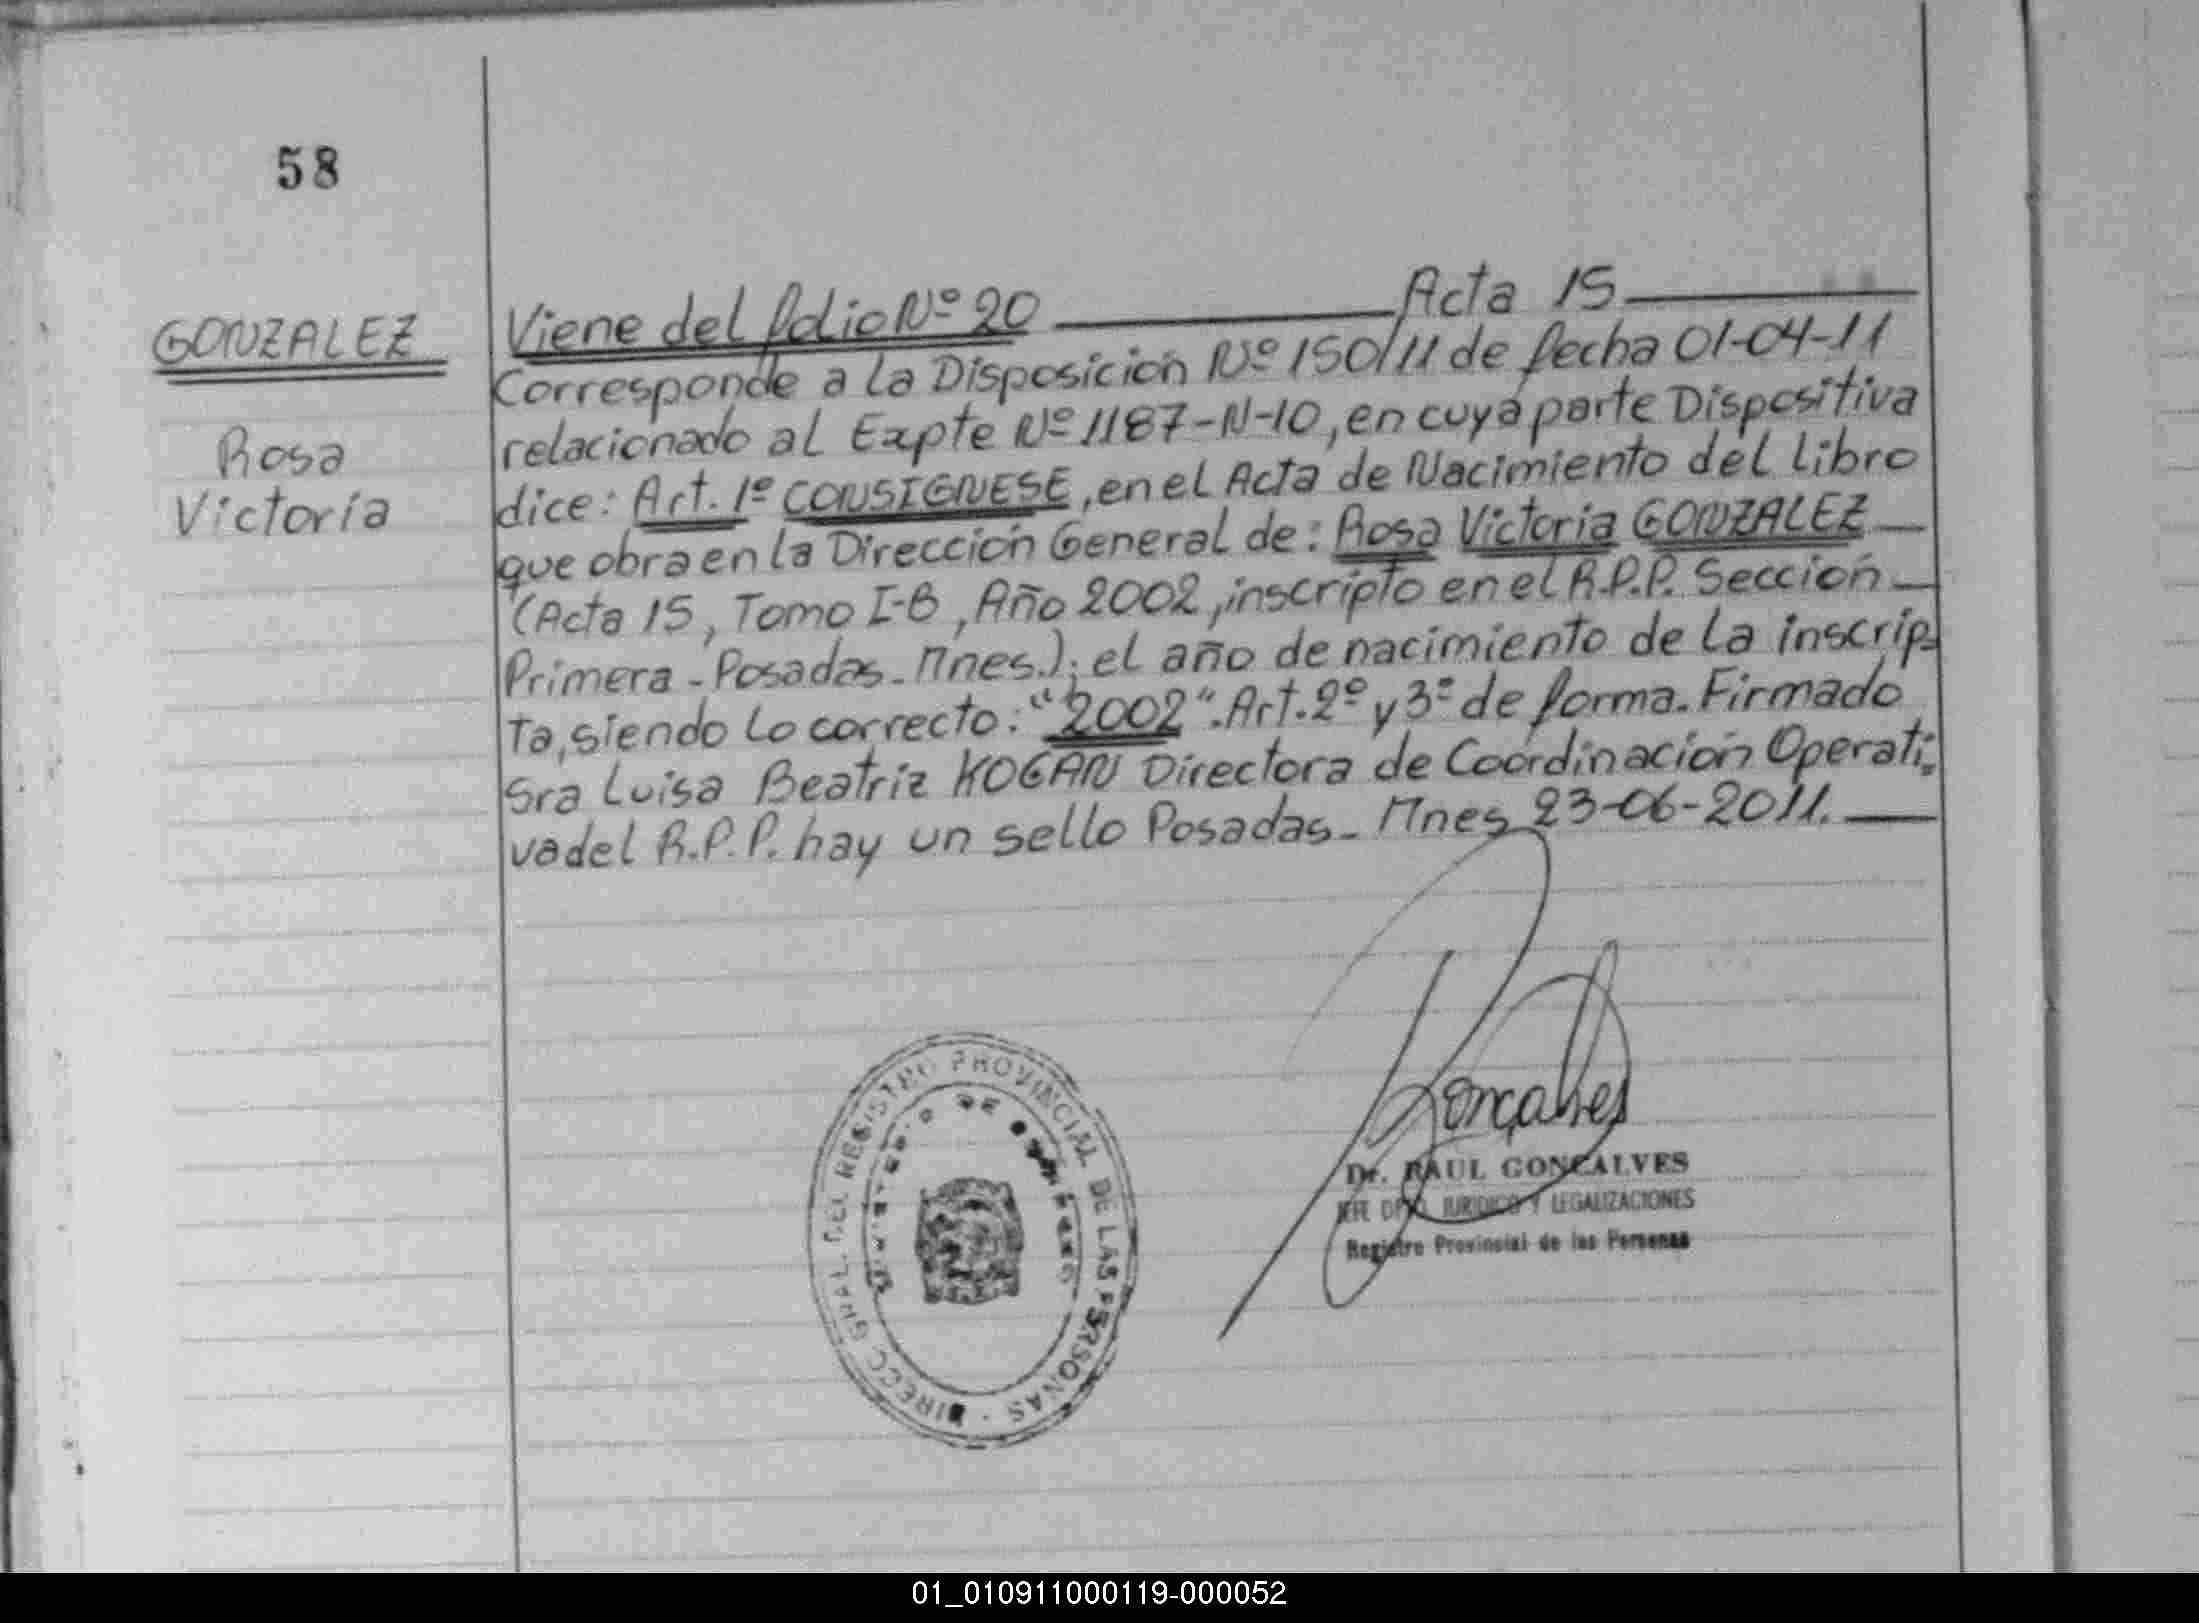 58
GONZALEZ
Rosa
Victoria
Viene del folio Nº 20 Acta 15
Corresponde a la Disposición Nº 150/11 de fecha 01-04-11
relacionado al Expte Nº 1187-N-10, en cuya parte Dispositiva
dice: Art. 1º CONSIGNESE, en el Acta de Nacimiento del Libro
que obra en la Dirección General de: Rosa Victoria GONZALEZ
(Acta 15, Tomo I-B, Año 2002, inscripto en el R.P.P. Sección
Primera - Posadas - Mnes.); el año de nacimiento de la inscrip-
ta, siendo lo correcto: "2002". Art. 2º y 3º de forma. Firmado
Sra Luisa Beatriz KOGAN Directora de Coordinación Operati-
va del R.P.P. hay un sello Posadas - Mnes 23-06-2011.
DIRECC. GRAL. DEL REGISTRO PROVINCIAL DE LAS PERSONAS
Goncalves
Dr. RAUL GONCALVES
JEFE DPTO. JURIDICO Y LEGALIZACIONES
Registro Provincial de las Personas
01_010911000119-000052